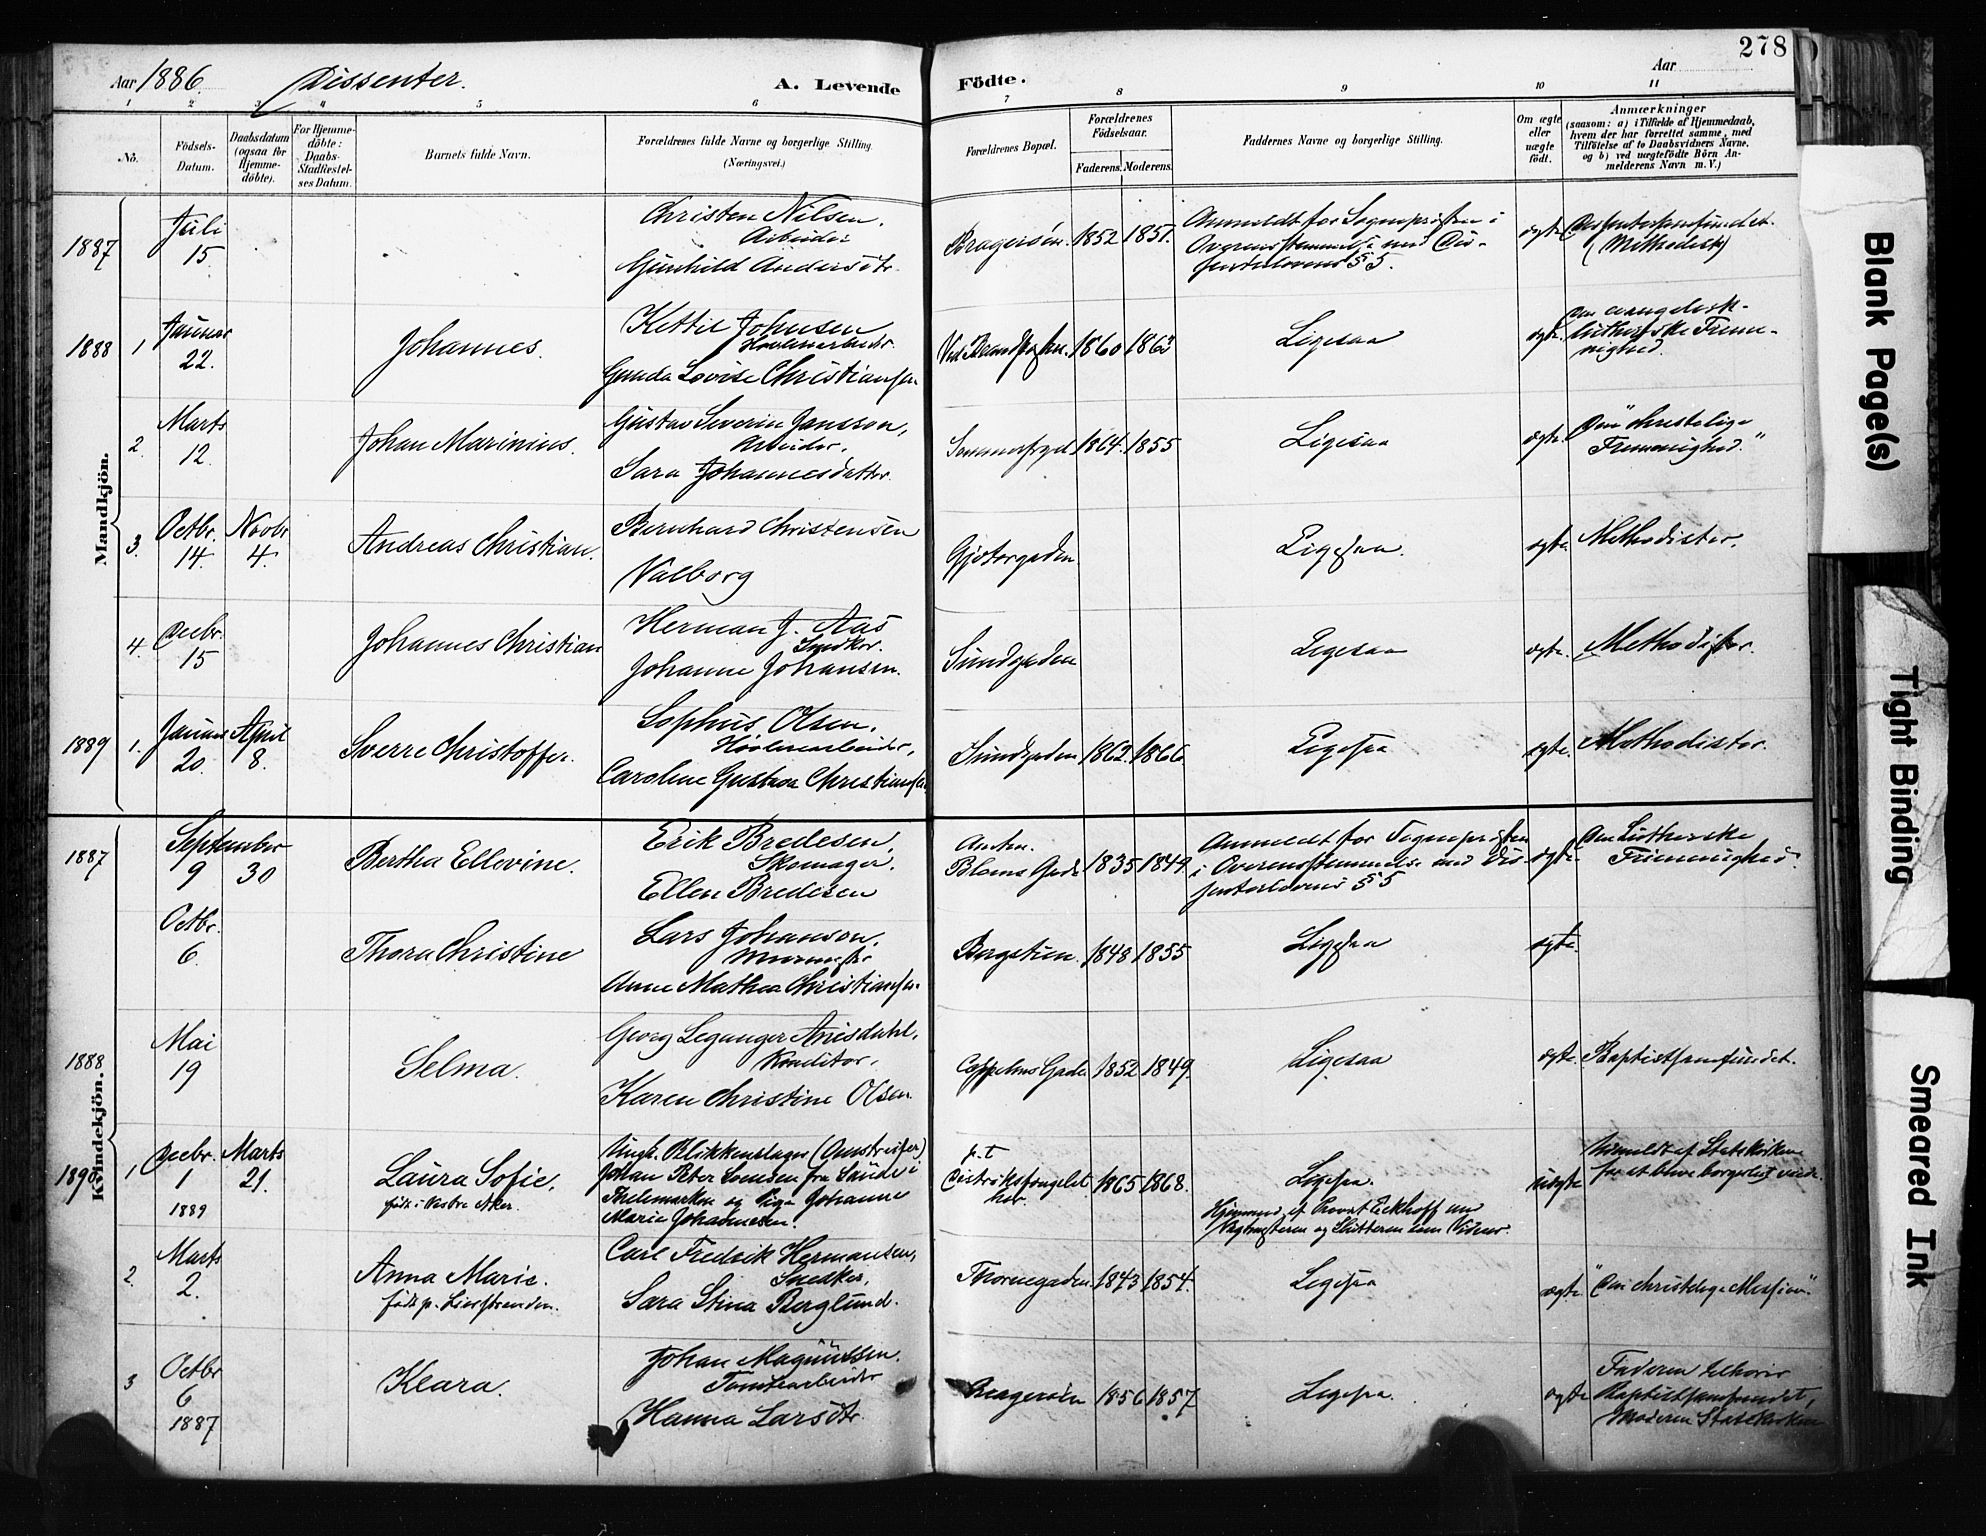 278
Aar 1886. Dissenter. A. Levende Födte. Aar
1 2 3 4 5 6 7 8 9 10 11
No. Födsels-Datum. Daabsdatum (ogsaa for Hjemmedöbte). For Hjemmedöbte: Daabs-Stadfæstelses Datum. Barnets fulde Navn. Forældrenes fulde Navne og borgerlige Stilling. (Næringsvei.) Forældrenes Bopæl. Forældrenes Födselsaar. Faderens. Moderens. Faddernes Navne og borgerlige Stilling. Om ægte eller uægte födt. Anmærkninger (saasom: a) i Tilfælde af Hjemmedaab, hvem der har forrettet samme, med Tilföielse af to Daabsvidners Navne, og b) ved uægtefödte Börn Anmelderens Navn m. V.)
Mandkjön.
1887 Juli 15. Christen Nilsen, Arbeider Gunhild Andersdtr. Bragerøen. 1852 1851. Anmeldt for Sognepræsten i Overensstemmelse med Dissenterlovens § 5. ægte Dissentersamfundet. (Methodist)
1888 1 Januar 22. Johannes. Kettil Johnsen Høvleriarbeider Gunda Lovise Christiansen 1860 1863 Ligesaa ægte. Den evangelisk-lutherske Frimenighed.
2. Marts 12. Johan Marinius. Gustav Severin Jansson, Arbeider. Sara Johannesdatter. 1864. 1855 Ligesaa ægte "Den christelige Fremenighed."
3. Octbr. 14. Novbr 4. Andreas Christian. Bernhard Christensen Valborg Gjetergaden Ligesaa. ægte. Methodister.
4. Decbr. 15 Johannes Christian Herman J. Aas Snedker. Johanne Johansen. Sundgaden Ligesaa ægte. Methodister.
1889 1. Januar 20. April 8. Sverre Christoffer. Sophus Olsen, Høvleriarbeider, Caroline Gustava Christiansen Sundgaden 1862. 1866 Ligesaa ægte. Methodister.
Kvindekjön.
1887 September 9 30 Bertha Ellevine. Erik Bredesen, Skomager. Ellen Bredesen Bloms Gade 1835 1849. Anmeldt for Sognepræsten i Overensstemmelse med Dissenterlovens § 5 ægte Den Lutherske Frimenighed
Octbr. 6. Thora Christine Lars Johanson, Murmester Anne Mathea Christiansen. Bergstien. 1848 1855 Ligesaa ægte
1888 Mai 19 Selma. Georg Leganger Anisdahl, Konditor, Karen Christine Olsen. Cappelens Gade 1852 1849. Ligesaa ægte. Baptistsamfundet.
1890 1, Decbr. 1 1889 Marts 21. Laura Sofie, født i Vestre Aker. Ungk. Blikkenslager (Omstreifer) Johan Peter fra Saude i Thelemarken og Pige Johanne Marie Johannesen. p.t. Distriktsfængslet her. 1865 1868. Ligesaa. Hjemmed. af Provst Eckhoff med Vagtmesteren og Slutteren som Vidner. uægte Udmeldt af Statskirken for at blive borgerligt viede.
2. Marts 2. Anna Marie. født p. Lierstranden. Carl Fredrik Hermansen, Snedker, Sara Stina Berglund. Thornegaden. 1843 1854. Ligesaa ægte. "Den christelige Mission".
3 Octbr 6 1887 Klara. Johan Magnussen. Tomtearbeider Hanna Larsdtr. Bragerøen 1856 1857 Ligesaa. ægte Faderen tilhører Baptistsamfundet, Moderen Statskirken
Blank Page(s)
Tight Binding
Smeared Ink